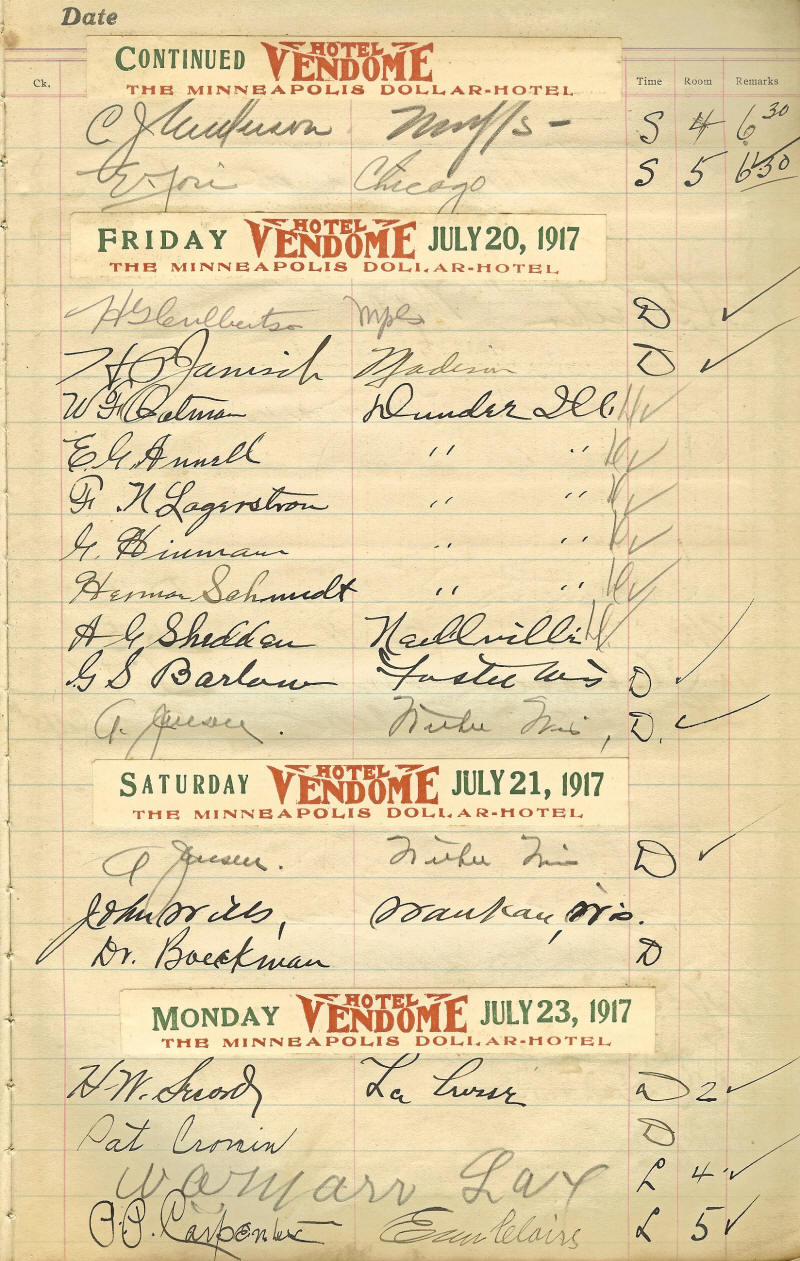 Date
CONTINUED HOTEL VENDOME
THE MINNEAPOLIS DOLLAR-HOTEL
Ck. Time Room Remarks
C J Anderson Mpls - S 4 6 30
Chicago S 5 6 30
FRIDAY HOTEL VENDOME JULY 20, 1917
THE MINNEAPOLIS DOLLAR-HOTEL
H G Culbertson Mpls D ✓
H P Janisch Madison D ✓
W F Oatman Dundee Ill. ✓
E. G. " " ✓
F N Lagerstrom " " ✓
G. Hinmann " " ✓
Herman Schmidt " " ✓
A G Sheddan Neillville
G S Barlow Foster Wis D ✓
A. Jensen. Wis, D. ✓
SATURDAY HOTEL VENDOME JULY 21, 1917
THE MINNEAPOLIS DOLLAR-HOTEL
A Jensen. Wis D ✓
John Wills, Waukau, Wis.
Dr. Boeckman D
MONDAY HOTEL VENDOME JULY 23, 1917
THE MINNEAPOLIS DOLLAR-HOTEL
H W. Secord La Crosse D 2 ✓
Pat Cronin D
W A Marr Lax L 4 ✓
P. P. Carpenter Eau Claire L 5 ✓